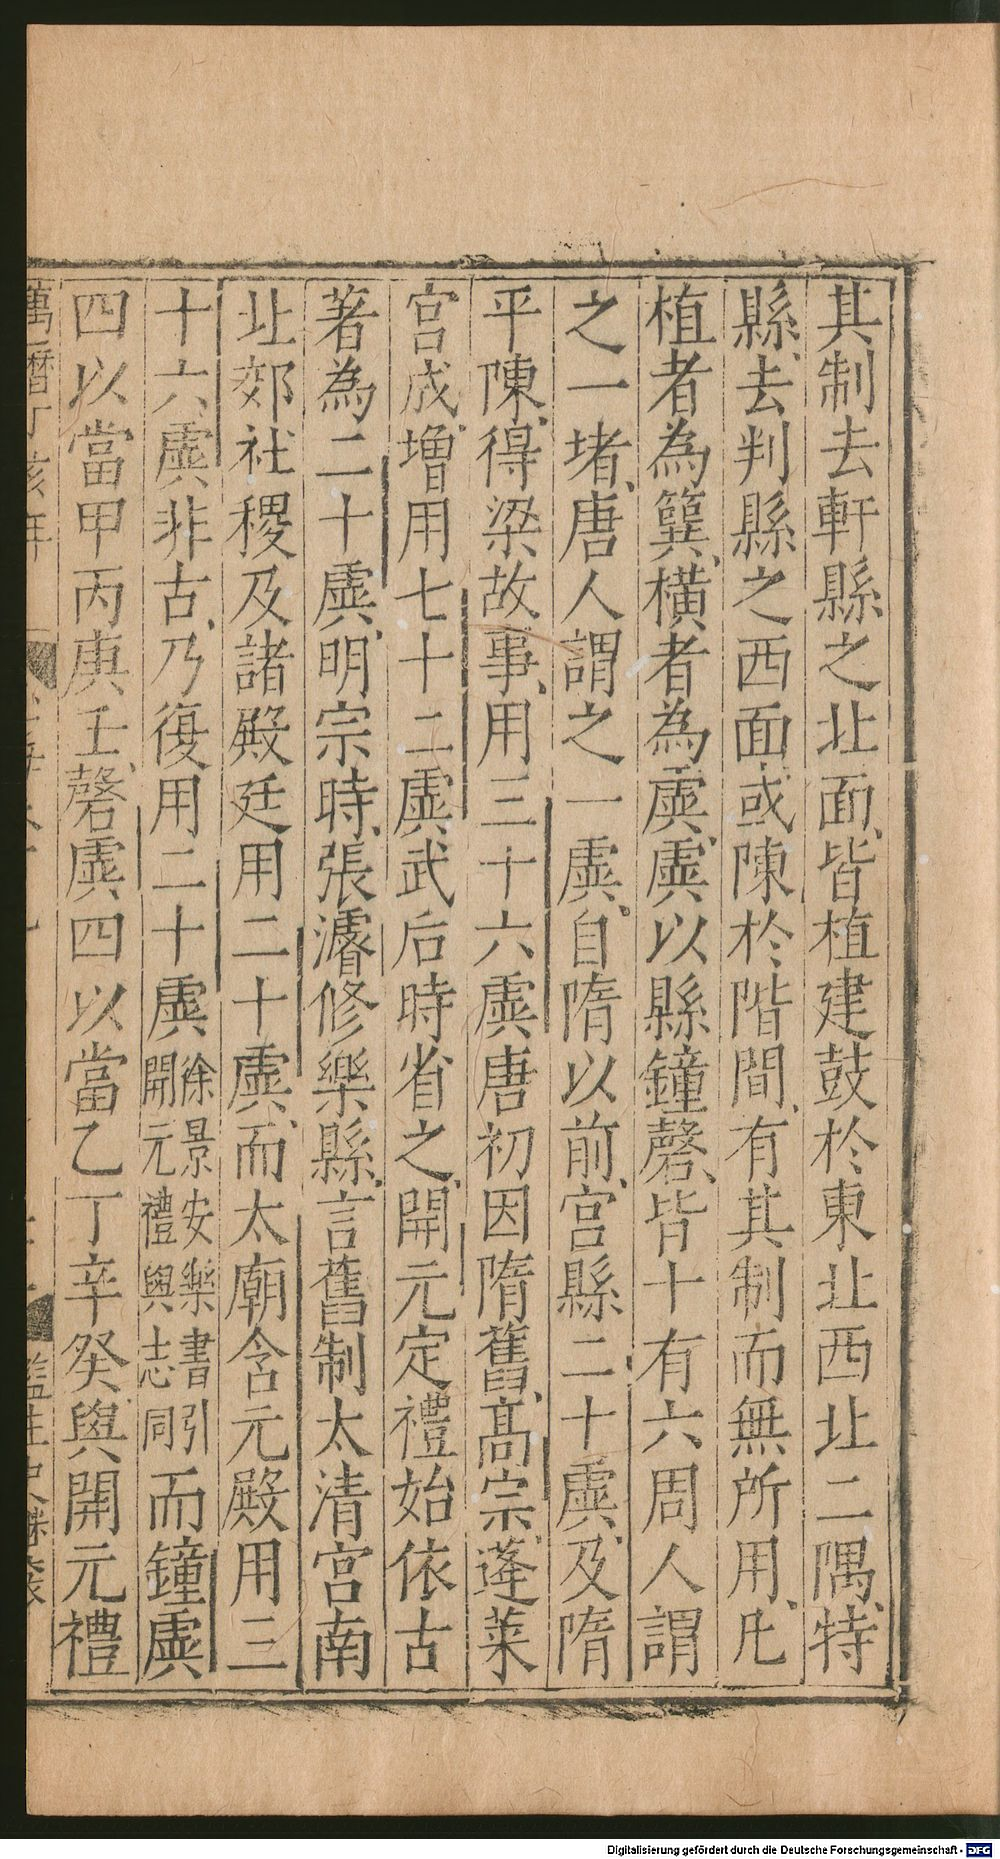 其制去軒縣之北面皆植建鼓於東北西北二隅特
縣去判縣之西面或陳於階間有其制而無所用凡
植者為簨橫者為虡虡以縣鐘磬皆十有六周人謂
之一堵唐人謂之一虡自隋以前宮縣二十虡及隋
平陳得梁故事用三十六虡唐初因隋舊高宗蓬萊
宮成增用七十二虡武后時省之開元定禮始依古
著為二十虡明宗時張濬修樂縣言舊制太清宮南
北郊社稷及諸殿廷用二十虡而太廟含元殿用三
十六虡非古乃復用二十虡徐景安樂書引開元禮與志同而鐘虡
四以當甲丙庚壬磬虡四以當乙丁辛癸與開元禮
萬曆丁亥年
Digitalisierung gefördert durch die Deutsche Forschungsgemeinschaft - DFG